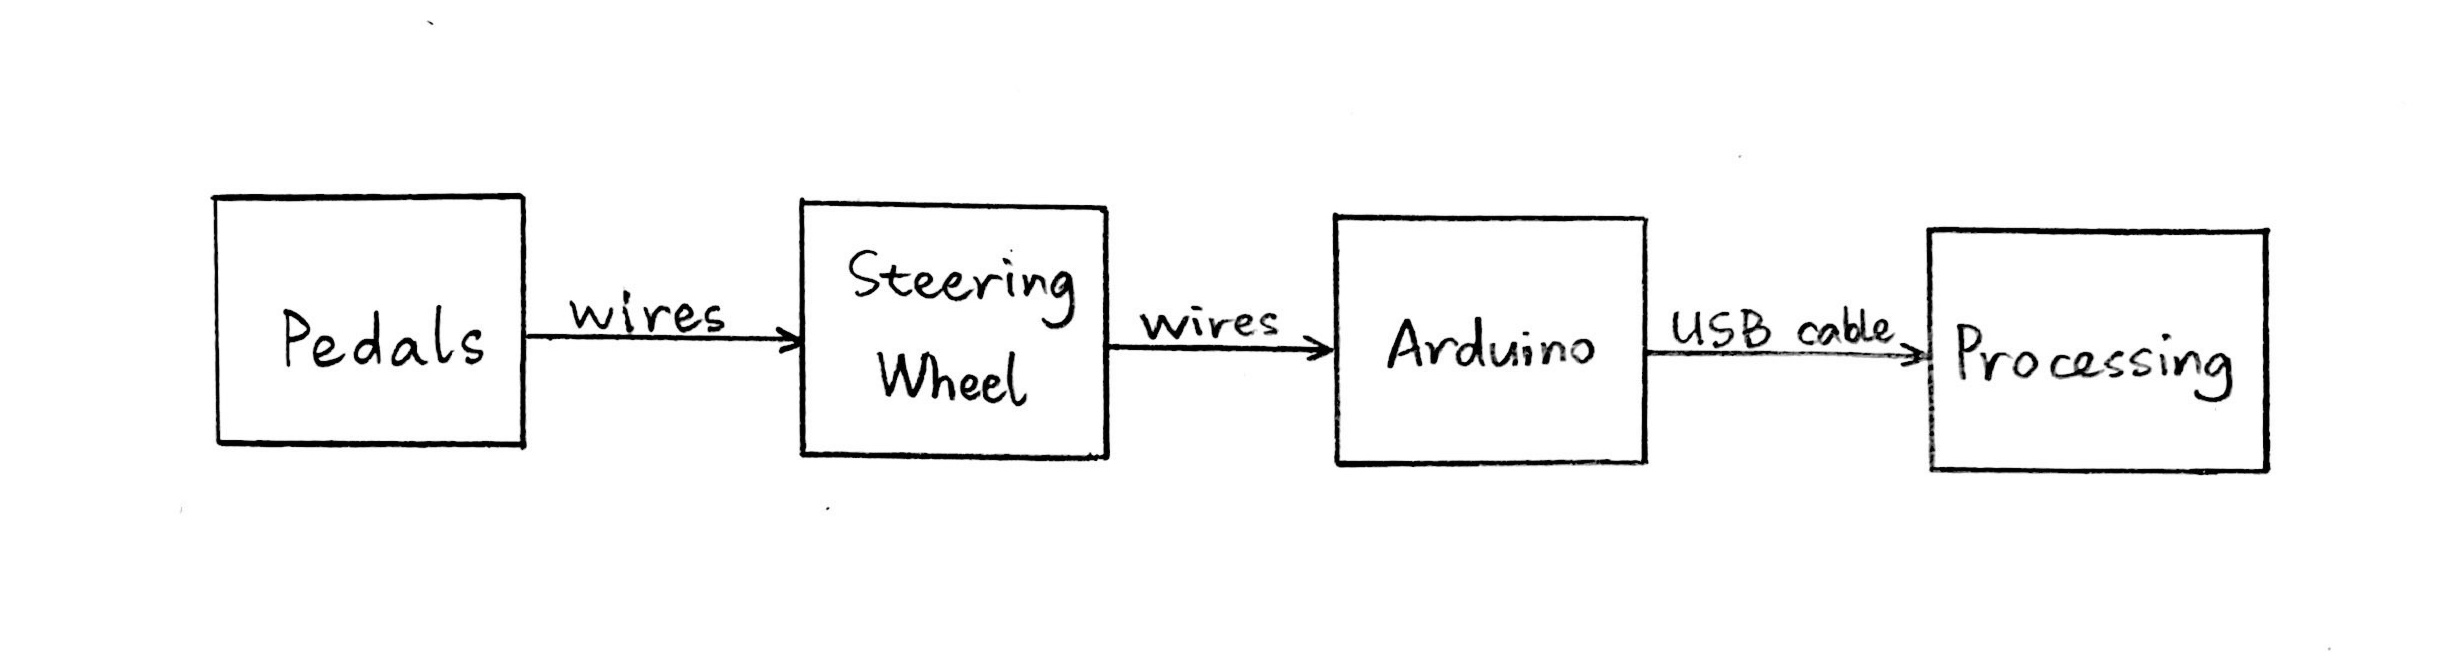 Pedals
wires
Steering
Wheel
wires
Arduino
USB cable
Processing